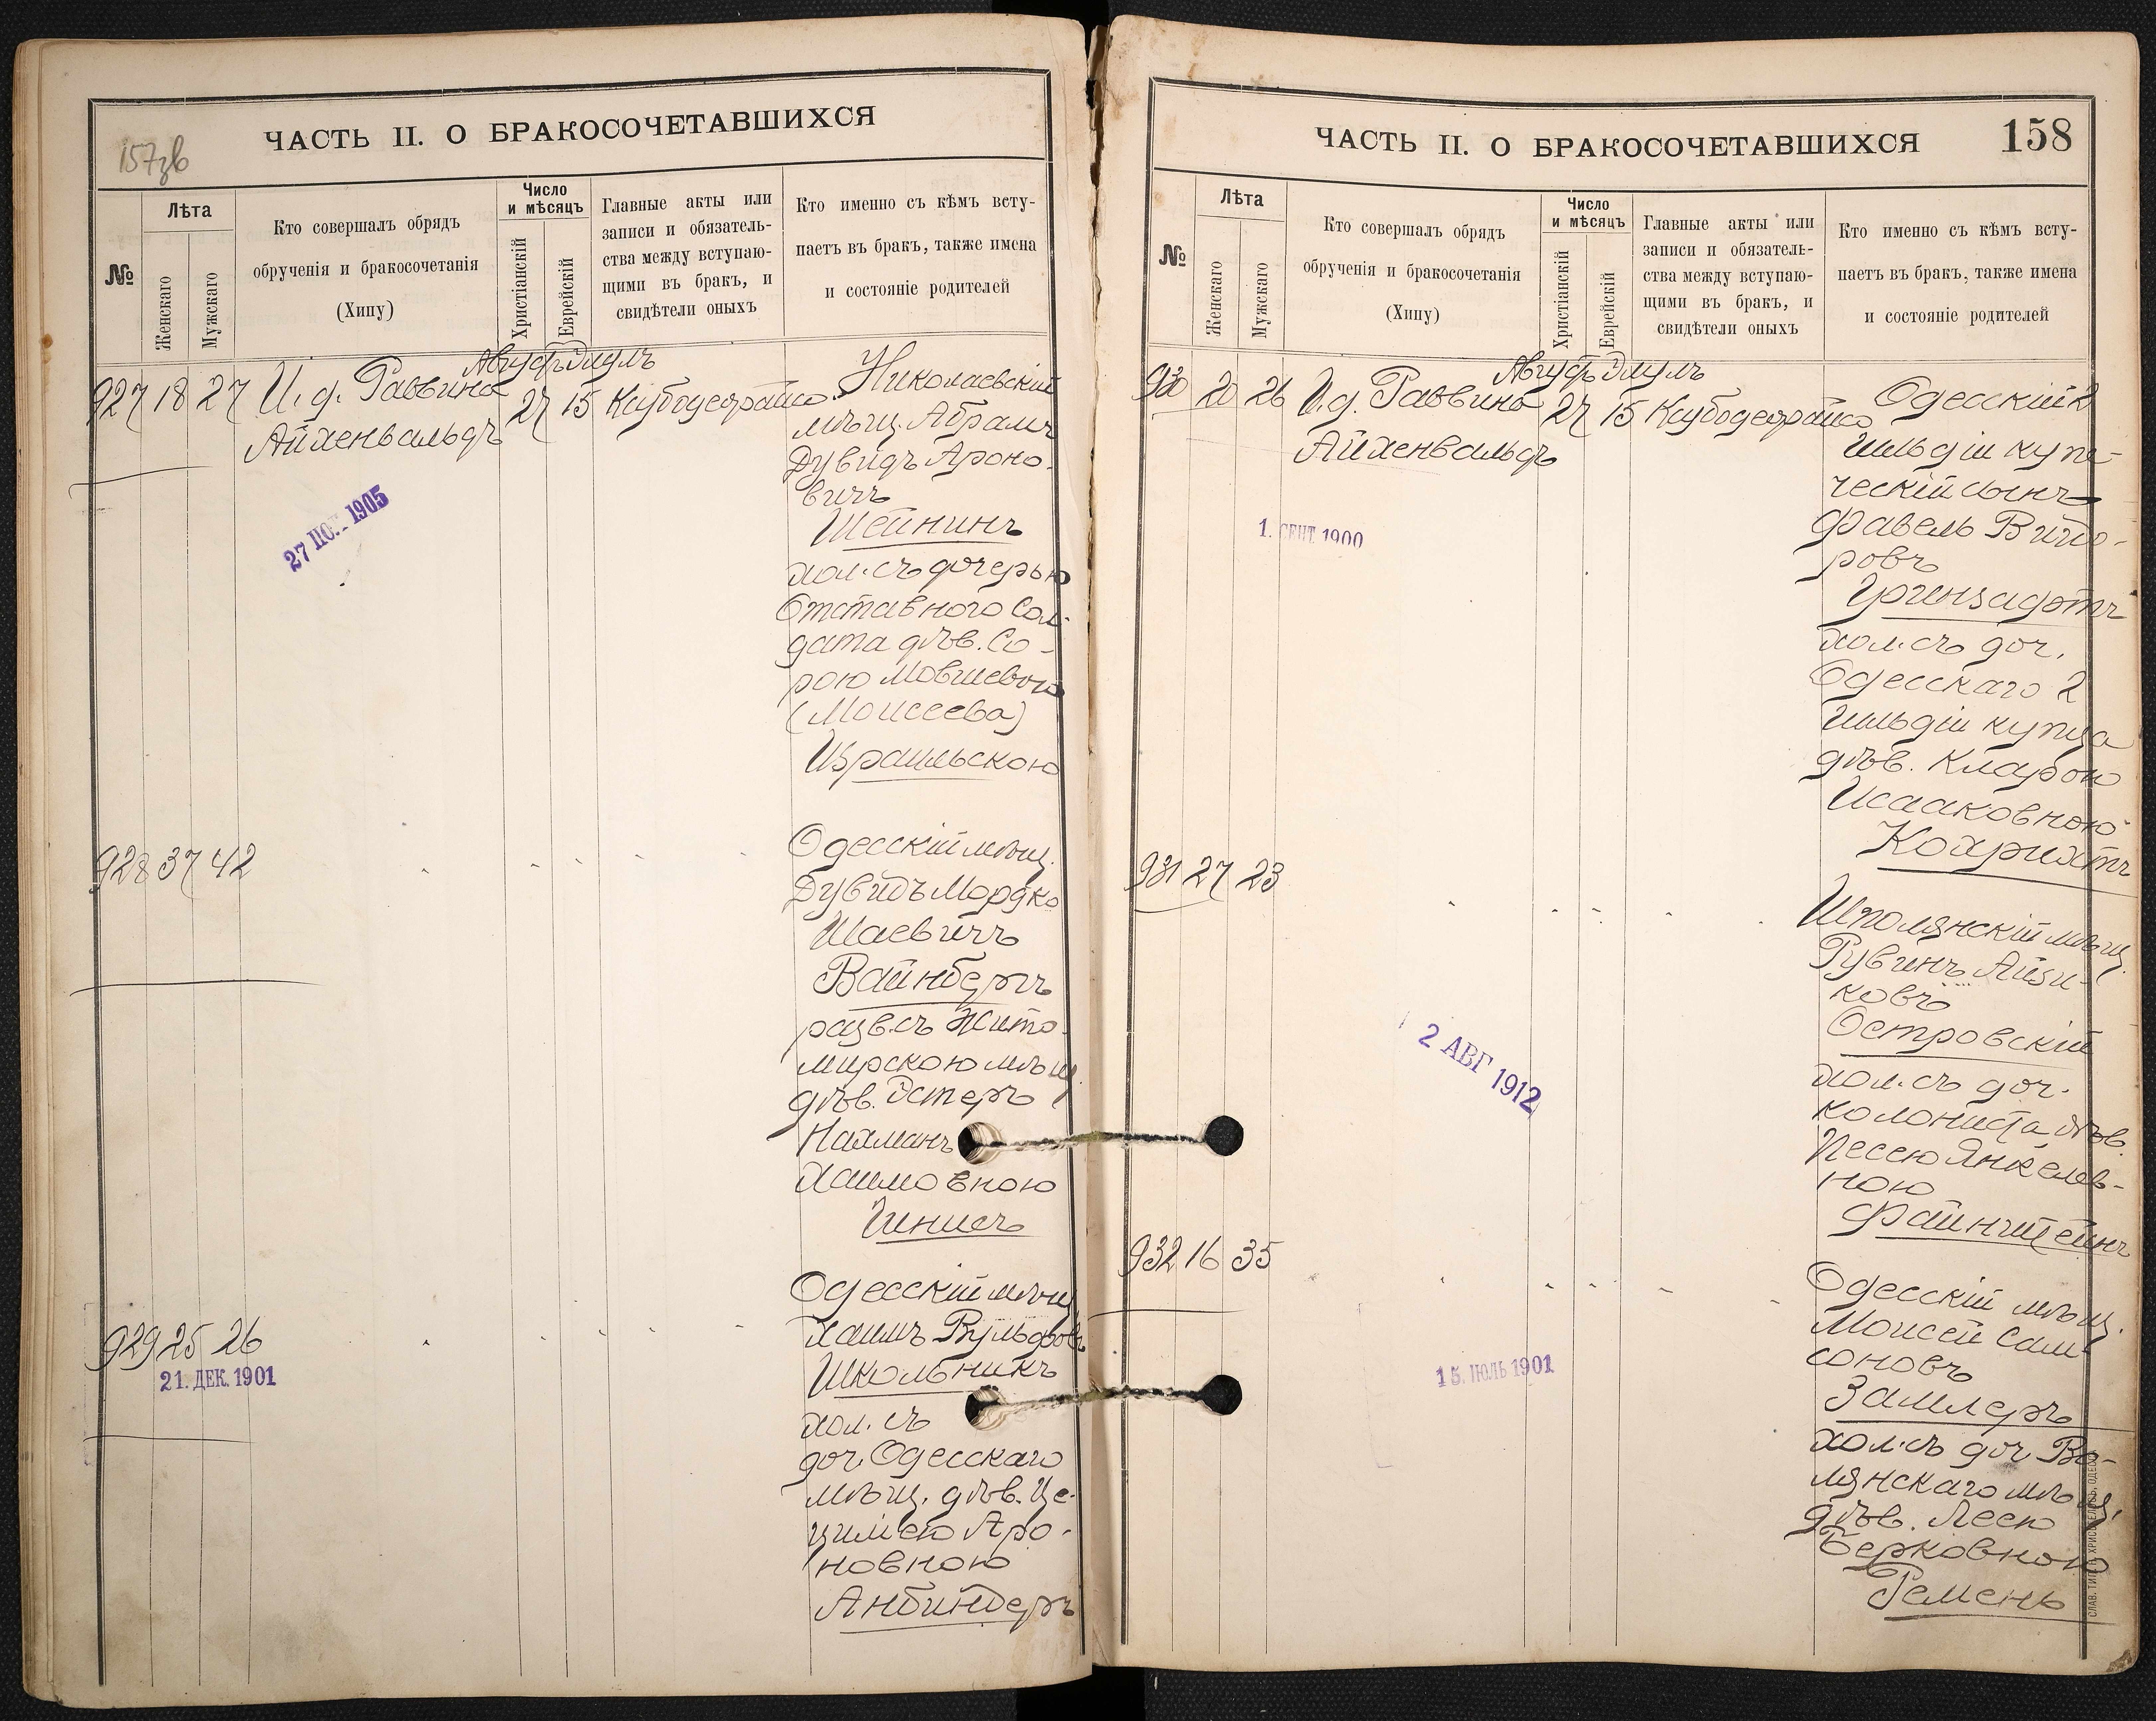 157зв
ЧАСТЬ II. О БРАКОСОЧЕТАВШИХСЯ
№
Лѣта
Женскаго
Мужскаго
Кто совершалъ обрядъ
обрученія и бракосочетанія
(Хипу)
Число
и мѣсяцъ
Христіанскій
Еврейскій
Главные акты или
записи и обязатель-
ства между вступаю-
щими въ бракъ, и
свидѣтели оныхъ
Кто именно съ кѣмъ всту-
паетъ въ бракъ, также имена
и состояніе родителей
Августъ Элулъ
927 18 27 И. д. Раввина 27 15
Айхенвальдъ
27 1905
Николаевскій
мѣщ. Абрамъ
Дувидъ Ароно-
вичъ
Шейнинъ
хол. съ дочерью
Отставного Сол-
дата дѣв. Со-
рою Мовшевою
(Моисеева)
Израильскою
928 37 42
Одесскій мѣщ.
Дувидъ Мордко
Шаевичъ
Вайнбергъ
разв. съ Жито-
мирскою мѣщ.
дѣв. Эстеръ
Нахманъ
Хаимовною
Гинисъ
929 25 26
21. ДЕК. 1901
Одесскій мѣщ.
Хаимъ Вульфовъ
Школьникъ
хол. съ
доч. Одесскаго
мѣщ. дѣв. Це-
циліею Аро-
новною
Анбиндеръ
ЧАСТЬ II. О БРАКОСОЧЕТАВШИХСЯ
158
№
Лѣта
Женскаго
Мужскаго
Кто совершалъ обрядъ
обрученія и бракосочетанія
(Хипу)
Число
и мѣсяцъ
Христіанскій
Еврейскій
Главные акты или
записи и обязатель-
ства между вступаю-
щими въ бракъ, и
свидѣтели оныхъ
Кто именно съ кѣмъ всту-
паетъ въ бракъ, также имена
и состояніе родителей
Августъ Элулъ
930 20 26 И. д. Раввина 27 15
Айхенвальдъ
1. СЕНТ. 1900
Одесскій 2
гильдіи купе-
ческій сынъ
Фавель Вигдо-
ровъ
Гринзадтъ
хол. съ доч.
Одесскаго 2
гильдіи купца
дѣв. Кларою
Исааковною
Кохрихтъ
931 27 23
2 АВГ 1912
Шполянскій мѣщ.
Рувинъ Айзи-
ковъ
Островскій
хол. съ доч.
колониста дѣв.
Песею Янкелев-
ною
Файнштейнъ
932 16 35
15. ІЮЛЬ 1901
Одесскій мѣщ.
Моисей Сам-
соновъ
Замлеръ
хол. съ доч. Во-
лянскаго мѣщ.
дѣв. Леею
Берковною
Ремень